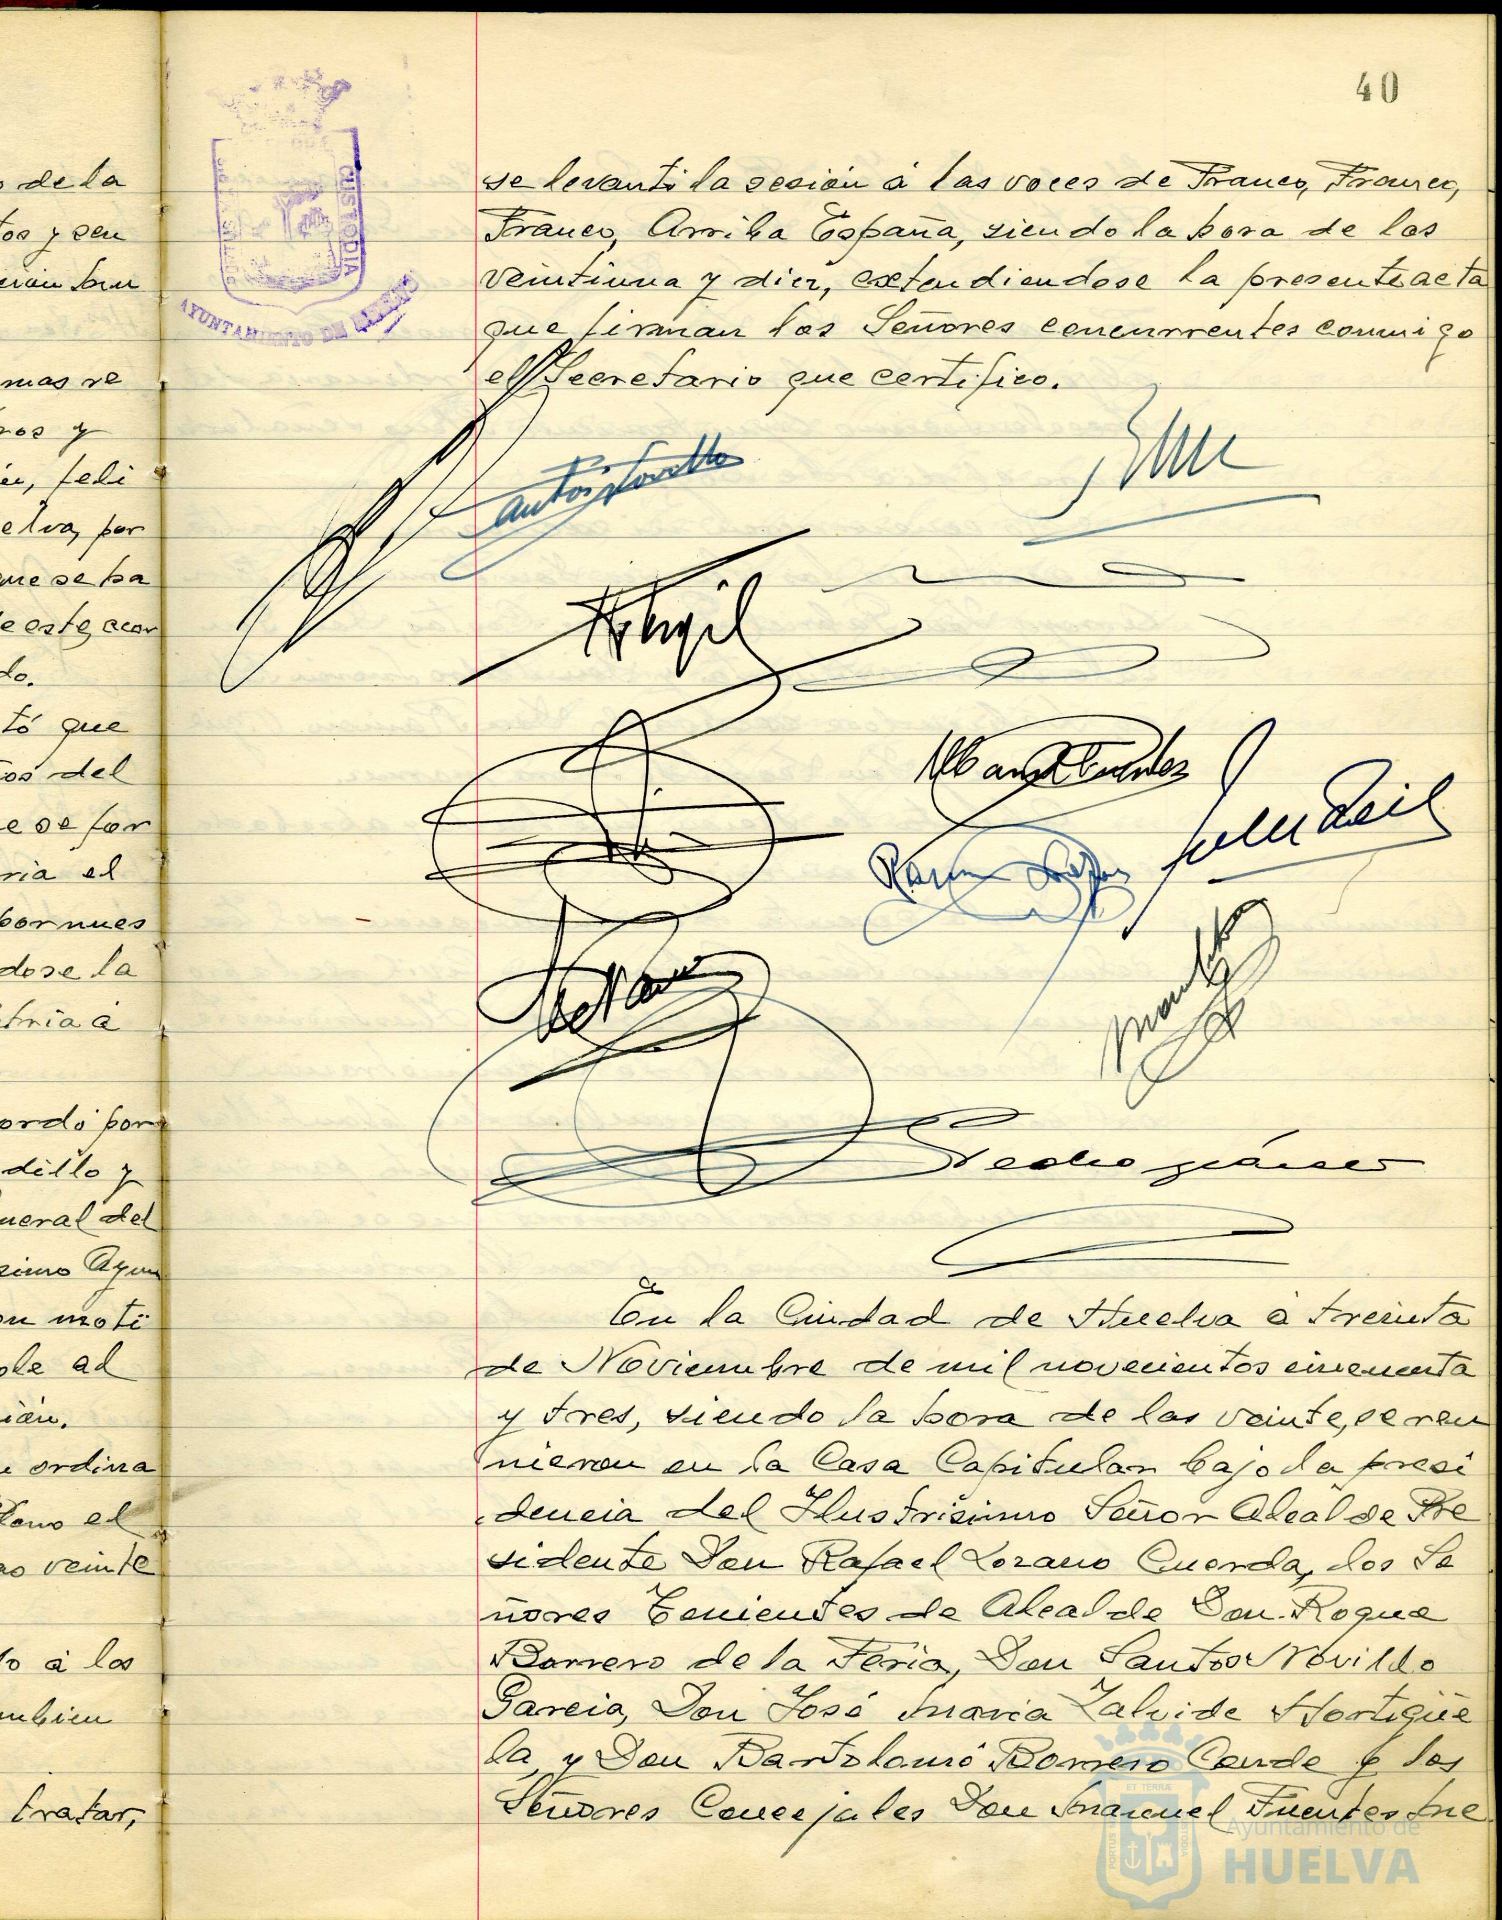 40
o de la
tos y seu
mas re
ros y
feli
elva, por
que se ha
e este acor
do.
tó que
tos del
e se for
ria el
por nues
dose la
tria á
ordó por
dillo y
neral del
simo Ayun
on moti
ole ad
ión.
ordina
Pleno el
veinte
lo á los
mbien
tratar,
PORTUS CUSTODIA
AYUNTAMIENTO DE
se levantó la sesión á las voces de Franco, Franco,
Franco, Arriba España, siendo la hora de las
veintiuna y diez, extendiendose la presente acta
que firman los Señores concurrentes conmigo
el Secretario que certifico.
Pedro
En la Ciudad de Huelva á treinta
de Noviembre de mil novecientos cincuenta
y tres, siendo la hora de las veinte, se reu
nieron en la Casa Capitular bajo la presi
dencia del Ilustrisimo Señor Alcalde Pre
sidente Don Rafael Lozano Cuerda, los Se
ñores Tenientes de Alcalde Don Roque
Borrero de la Feria, Don Santos Novillo
Garcia, Don José Maria Zalvide Hortigüe
la, y Don Bartolomé Borrero Conde y los
Señores Concejales Don Manuel Fuentes Me
Ayuntamiento de
HUELVA